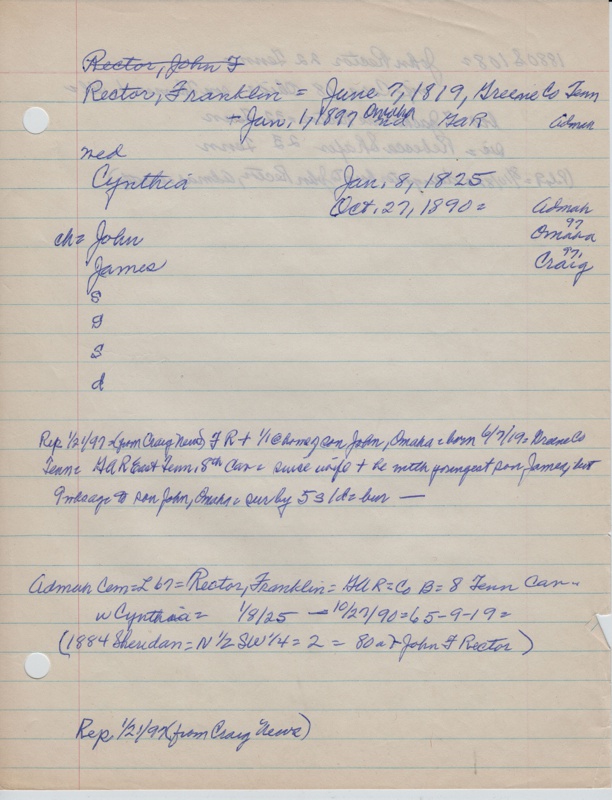 Rector, John F
Rector, Franklin = June 7, 1819, Greene Co Tenn
- Jan, 1, 1897 Omaha GaR Admah
med
Cynthia Jan, 8, 1825
Oct. 27, 1890 = Admah
97
Omaha
ch = John
97,
James Craig
s
s
s
d
Rep 1/21/97 (from Craig News) F R + 1/1 @ home of son John, Omaha = born 6/7/19 = Greene Co
Tenn = GAR East Tenn 8th Cav = since wife + he with youngest son James, but
9 mos ago to son John, Omaha = sur by 5 s 1 d = bur —
Admah Cem = L 67 = Rector, Franklin = GAR = Co B = 8 Tenn Cav =
w Cynthia = 1/8/25 — 10/27/90 = 65-9-19 =
(1884 Sheridan = N 1/2 SW 1/4 = 2 = 80 a = John F Rector)
Rep 1/21/97 (from Craig News)